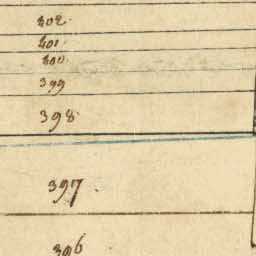 402
401
400
399
398
397
396